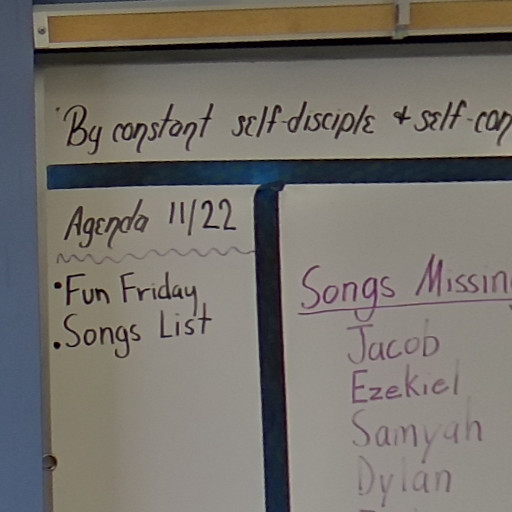 "By constant self-disciple + self-con
Agenda 11/22
• Fun Friday
• Songs List
Songs Missin
Jacob
Ezekiel
Samyah
Dylan